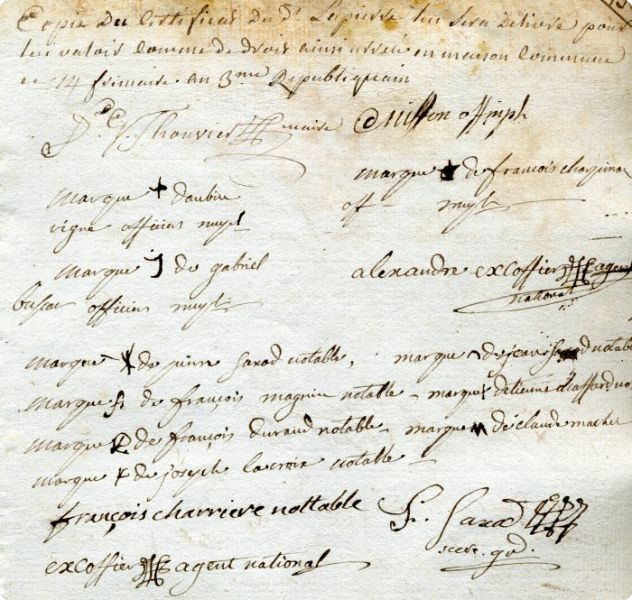 Copie du Certificat du dt Lapierre lui sera delivré pour
lui valoir comme de droit ainsi arreté en maison commune
ce 14 frimaire an 3me Republiquain
Thouvier maire Million off mpl
marque de francois
marque + daubin
vigne officier mupl off mupl
marque J de gabriel alexandre excoffier agent
officier mupl national
marque de pierre saxod notable, marque de jean saxod notable
marque de françois magnin notable - marque detienne
marque de françois durand notable - marque de claude
marque de joseph lacroix notable -
françois charriere nottable f. Saxod
excoffier agent national secre. gd.